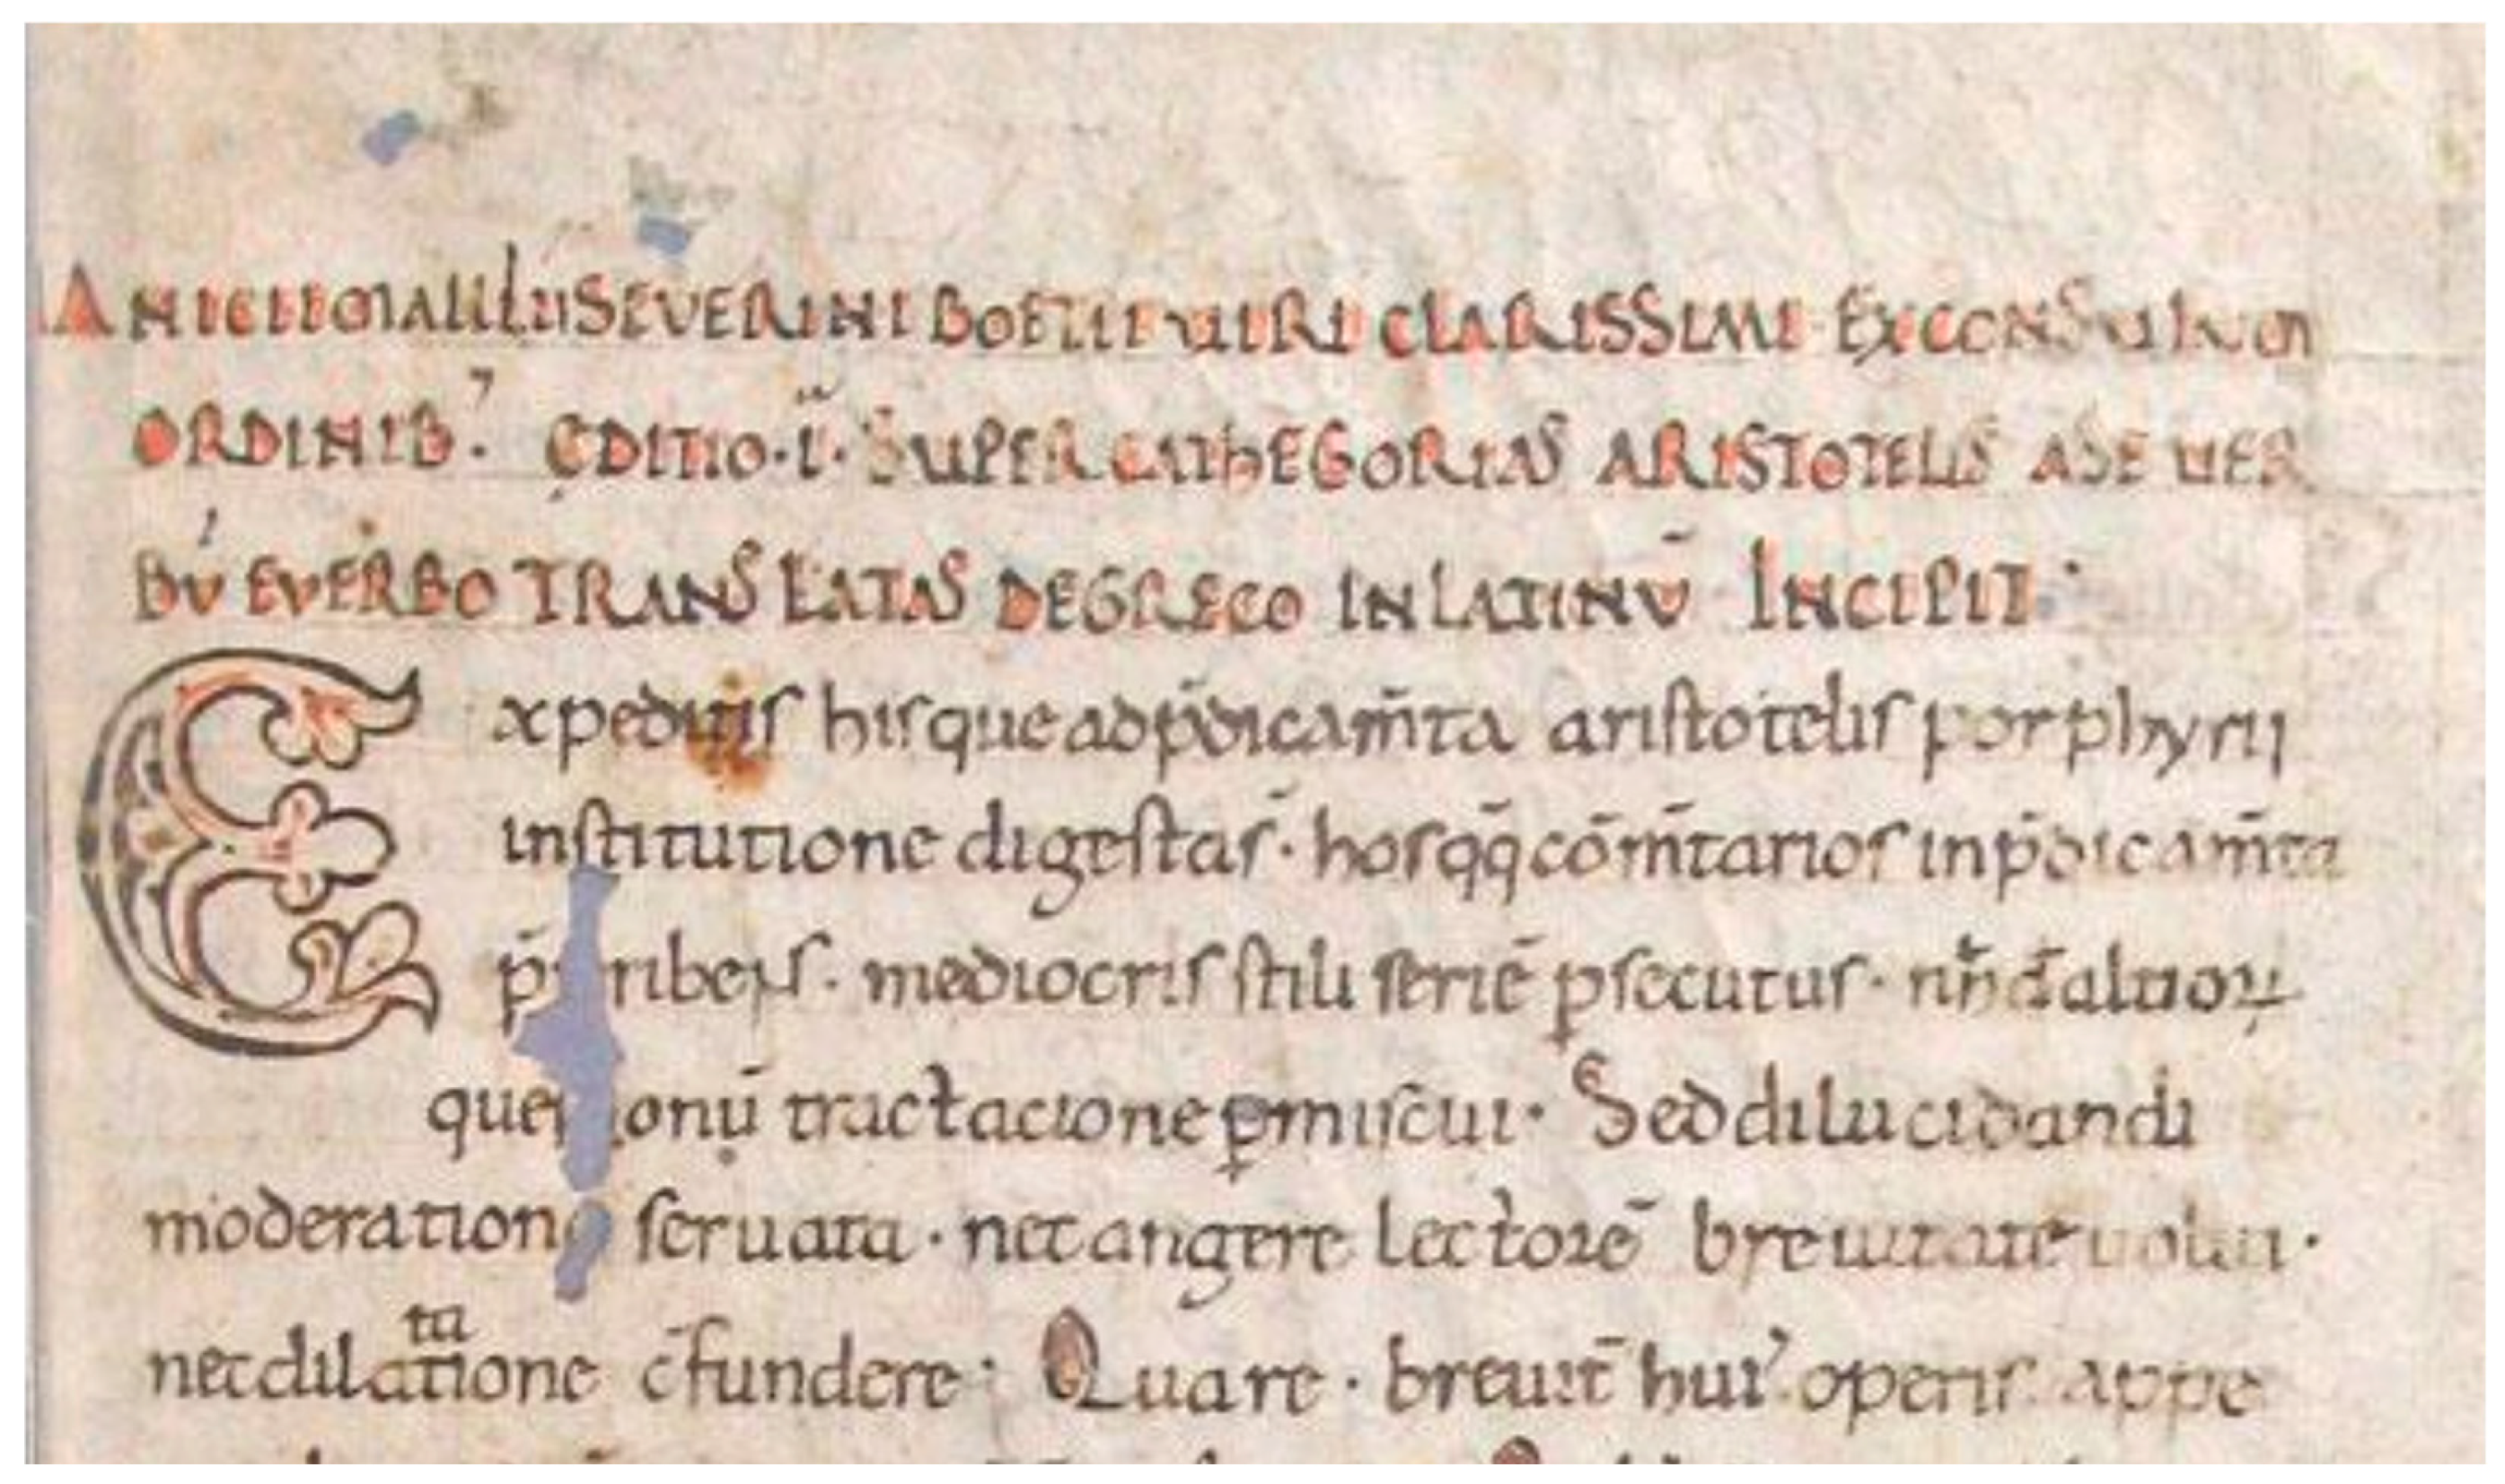 ANICII MALLII SEVERINI BOETII VIRI CLARISSIMI EXCONSULUM
ORDINIB'. EDITIO .II. SUPER CATHEGORIAS ARISTOTELIS A SE UER
BŪ E VERBO TRANSLATAS DE GRECO IN LATINŪ INCIPIT
Expeditis hisque ad p̄dicam̄ta aristotelis porphyrii
institutione digestas̄ · hos qq̄ cōm̄tarios in p̄dicam̄ta
mediocris stili seriē ꝑsecutus · altioꝝ
tractacione ꝑmiscui · Sed dilucidandi
moderation seruata · nec angere lectorē breuitate uolui ·
nec dilatatione c̄fundere · Quare · breuit̄ hui' operis appe